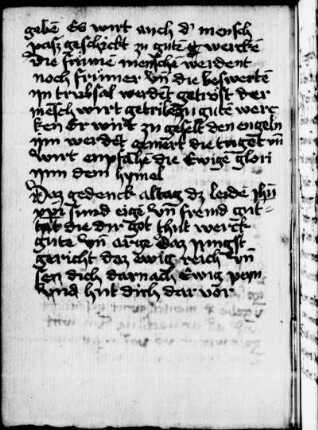 geben Es wirt auch d' mensch
pas geschickt zu gůte wercken
die frúme mensche werdent
noch frúmer vn̄ die beswerten
im trubsal werden getröst der
mensch wirt getriben zu gutē werc
ken Er wirt zu geselt den engeln
im werdēt gemert die tugēt vn̄
wirt enpfahē die Ewige glori
inn dem hymel
Daz gedenck altag dz leidē
sind eige vn̄ fremd sunt
die dir got thut werck
gůte vn̄ arge Daz jungst
gericht daz ewig reich vn̄
dich darnach Ewig pein
vnd hút dich dar vor